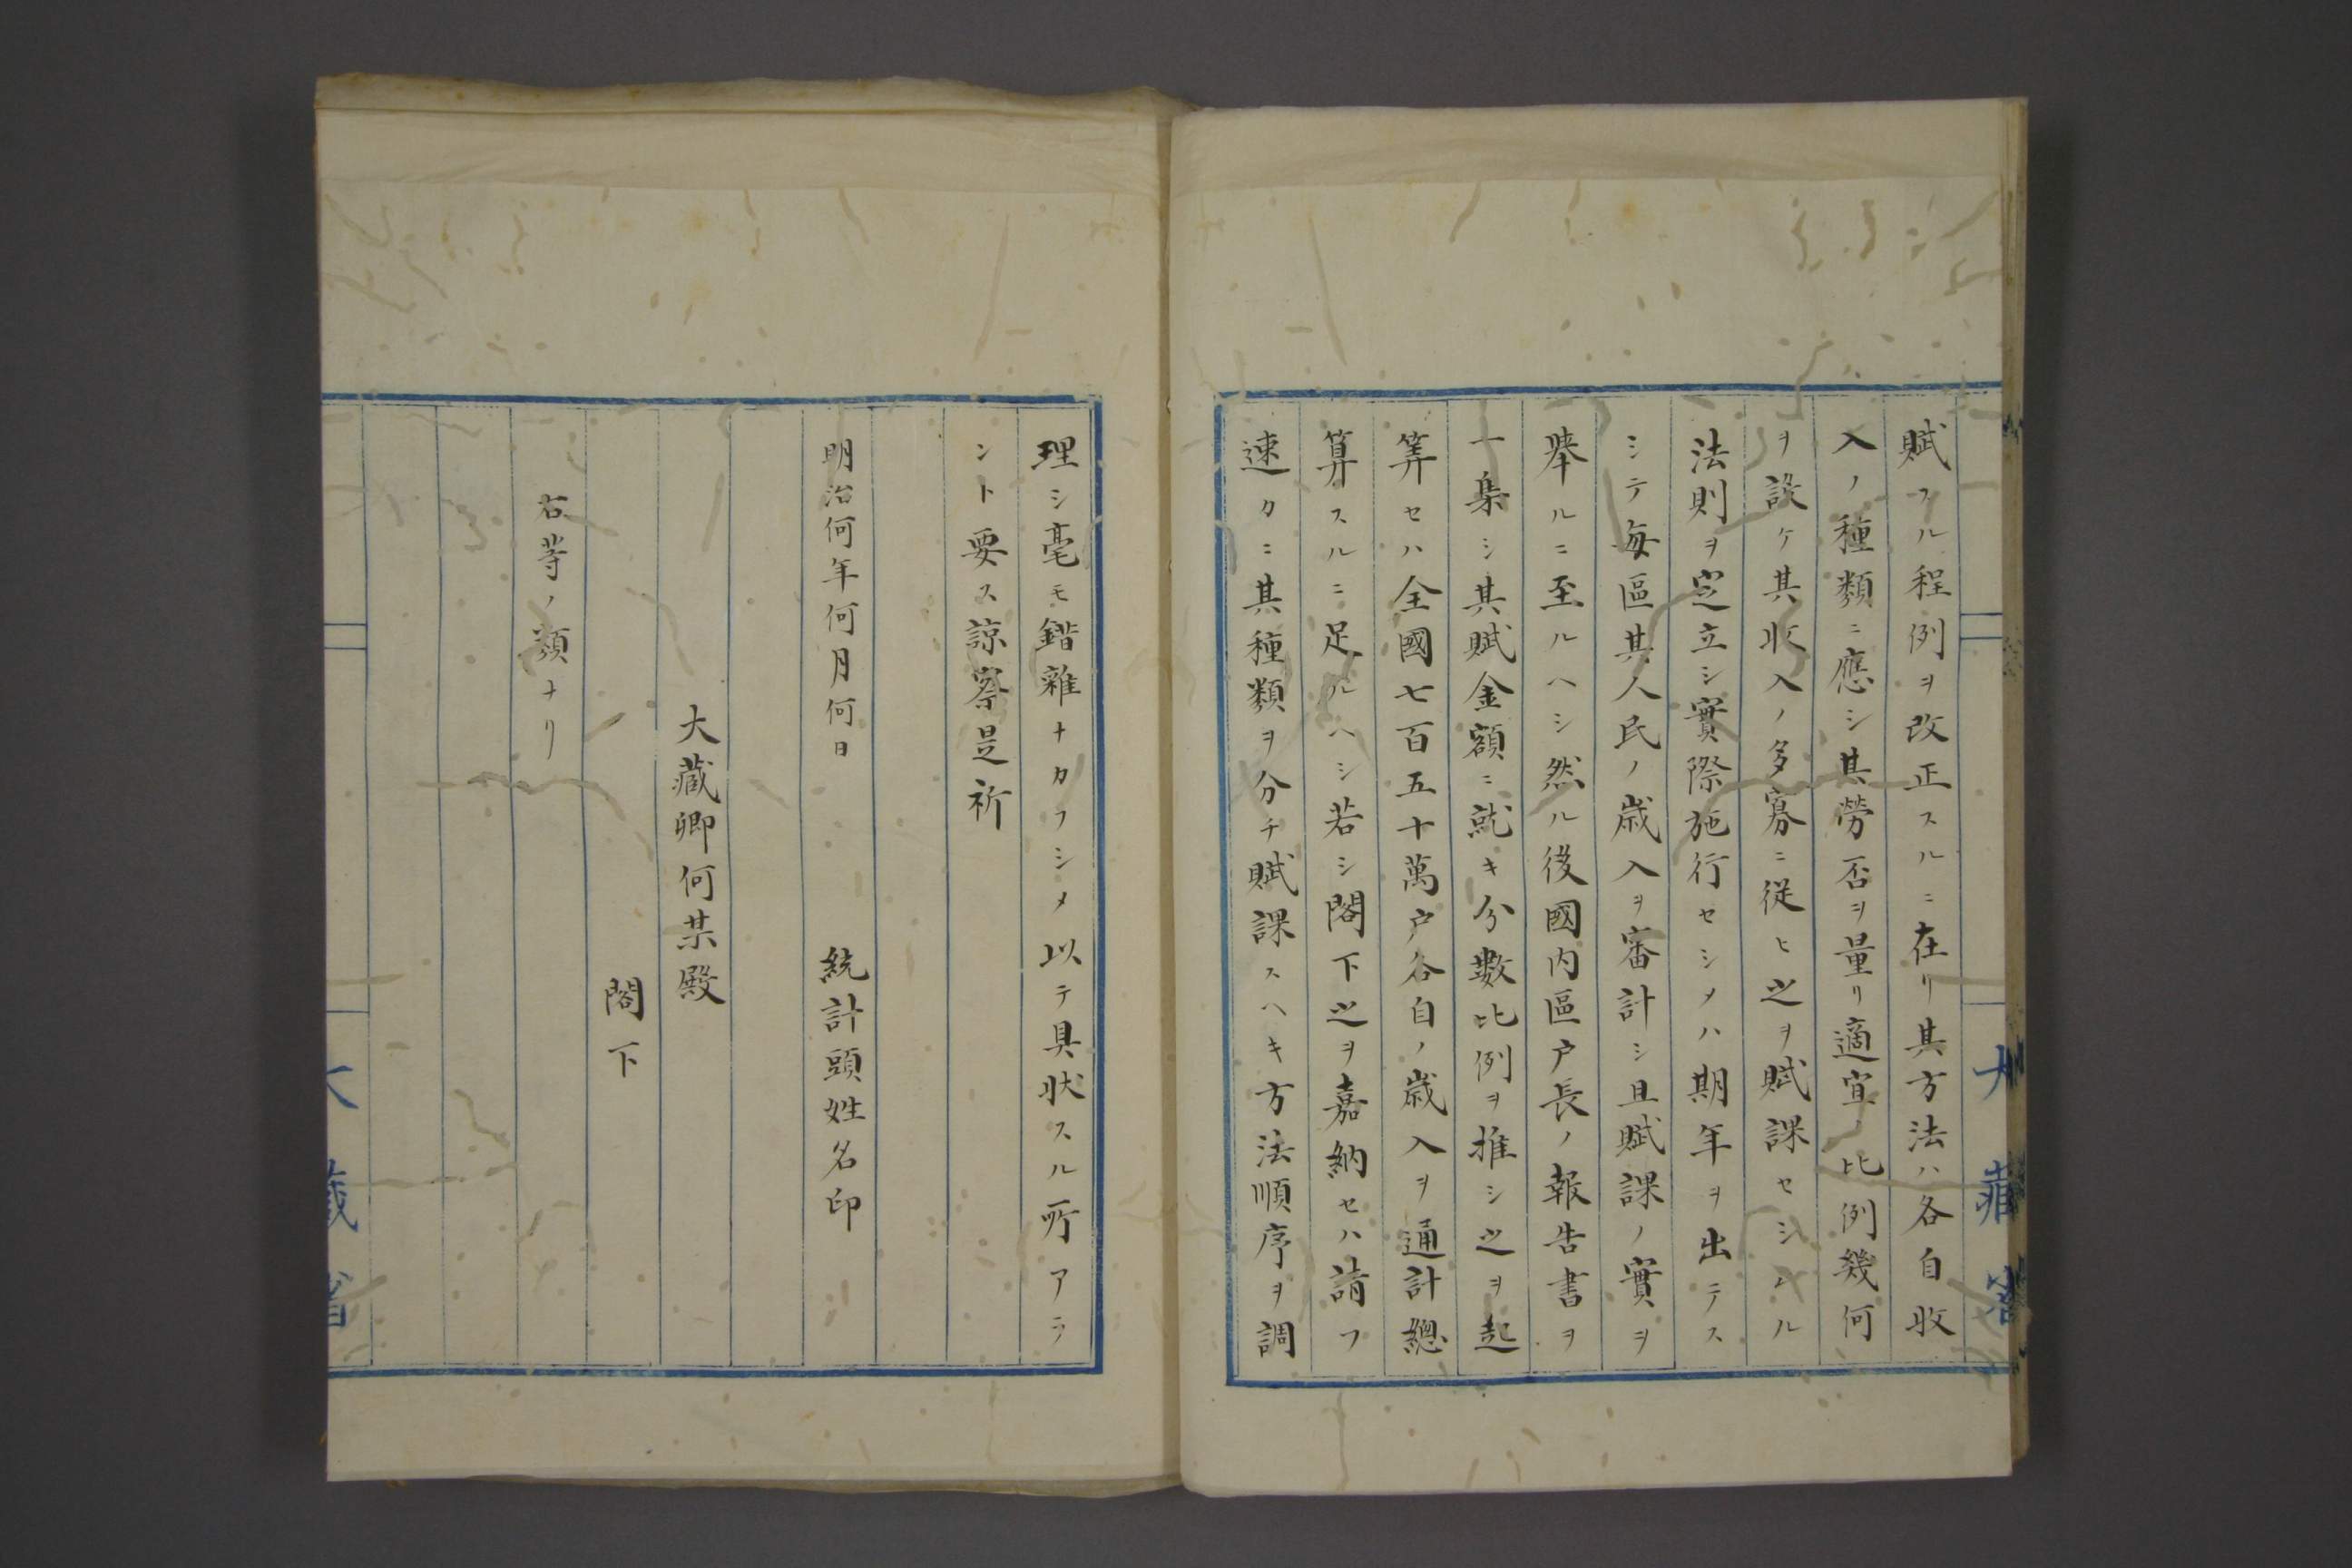 賦スル程例ヲ改正スルニ在リ其方法ハ各自收
入ノ種類ニ應シ其勞否ヲ量リ適宜ノ比例幾何
ヲ設ケ其收入ノ多寡ニ從ヒ之ヲ賦課セシムル
法則ヲ定立シ實際施行セシメハ期年ヲ出テス
シテ每區其人民ノ歳入ヲ審計シ且賦課ノ實ヲ
擧ルニ至ルヘシ然ル後國内區戸長ノ報告書ヲ
一集シ其賦金額ニ就キ分數比例ヲ推シ之ヲ起
算セハ全國七百五十萬戸各自ノ歳入ヲ通計總
算スルニ足ルヘシ若シ閣下之ヲ嘉納セハ請フ
速カニ其種類ヲ分チ賦課スヘキ方法順序ヲ調
理シ毫モ錯雜ナカラシメ以テ具狀スル所アラ
ント要ス諒察是祈
明治何年何月何日 統計頭姓名印
大藏卿何某殿
閣下
右等ノ類ナリ
大藏省